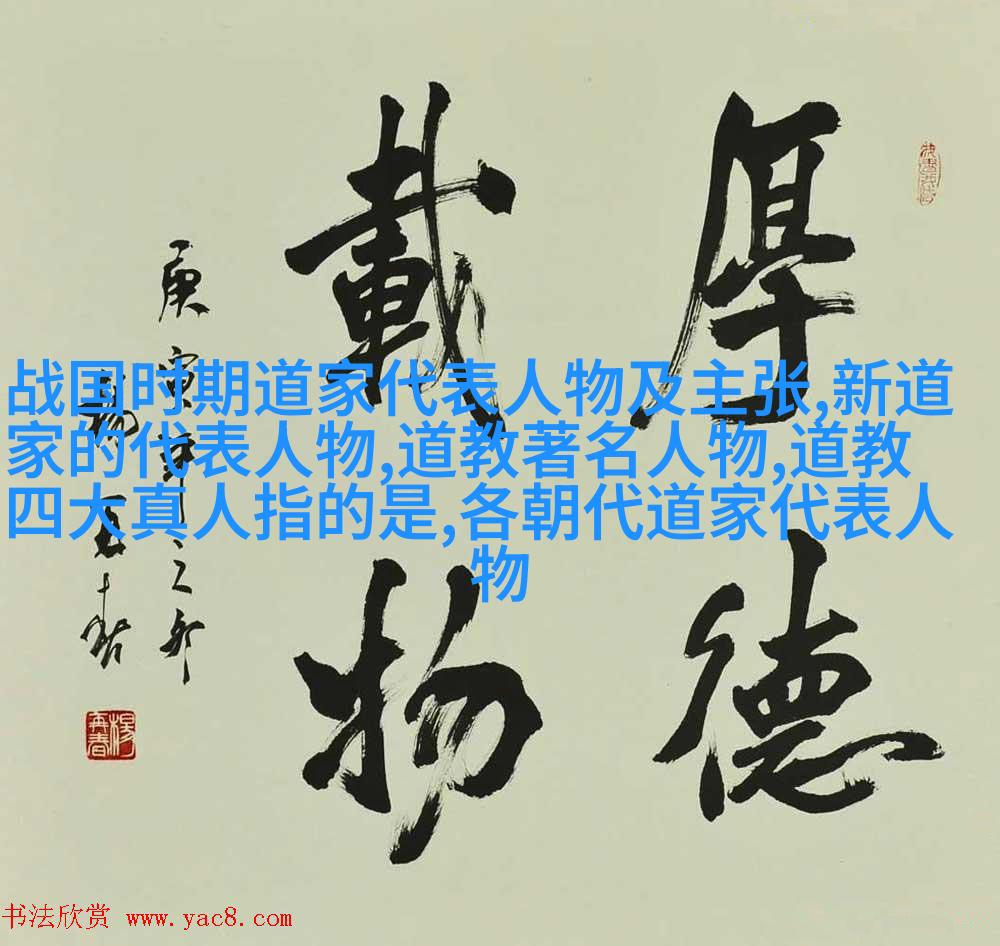 厚德
載物
庚寅年之卯
楊再春
楊再春
战国时期道家代表人物及主张,新道
家的代表人物,道教著名人物,道教
四大真人指的是,各朝代道家代表人
物
书法欣赏 www.yac8.com